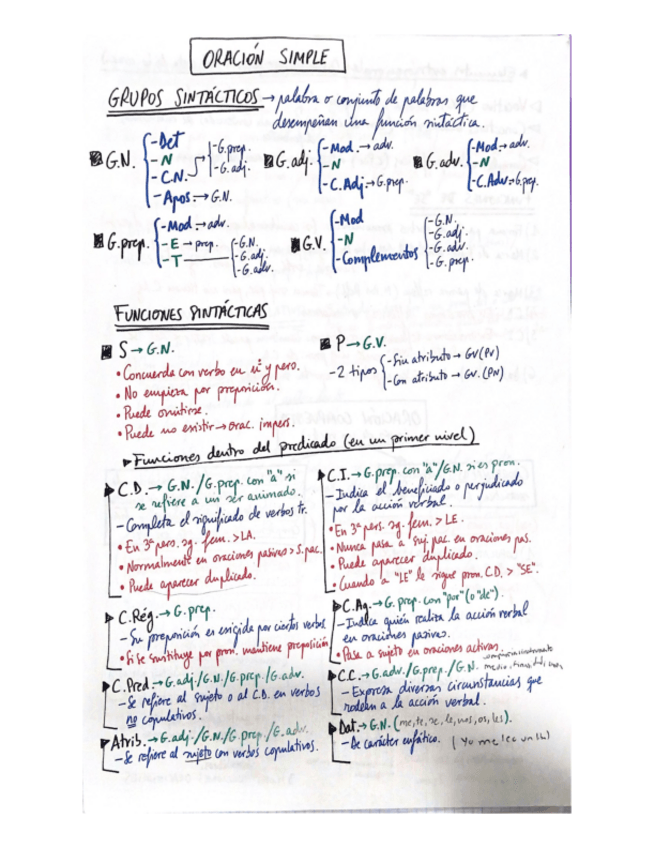 ORACIÓN SIMPLE
GRUPOS SINTÁCTICOS → palabra o conjunto de palabras que
desempeñan una función sintáctica.
G.N. -Det
-N
-C.N. -G.prep.
-G.adj.
-Apos. → G.N.
G.adj. -Mod. → adv.
-N
-C.Adj → G.prep.
G.adv. -Mod → adv.
-N
-C.Adv → G.prep.
G.prep. -Mod. → adv.
-E → prep.
-T -G.N.
-G.adj.
-G.adv.
G.V. -Mod
-N
-Complementos -G.N.
-G.adj.
-G.adv.
-G.prep.
FUNCIONES SINTÁCTICAS
S → G.N.
• Concuerda con verbo en nº y pers.
• No empieza por preposición.
• Puede omitirse.
• Puede no existir → orac. impers.
P → G.V.
-2 tipos -Sin atributo → GV (PV)
-Con atributo → GV. (PN)
▸ Funciones dentro del predicado (en un primer nivel)
C.D. → G.N. / G.prep. con "a" si
se refiere a un ser animado.
- Completa el significado de verbos tr.
• En 3ª pers. sg. fem. > LA.
• Normalmente en oraciones pasivas > S. pac.
• Puede aparecer duplicado.
C.I. → G.prep. con "a" / G.N. si es pron.
- Indica el beneficiado o perjudicado
por la acción verbal.
• En 3ª pers. sg. fem. > LE.
• Nunca pasa a suj. pac. en oraciones pas.
• Puede aparecer duplicado.
• Cuando a "LE" le sigue pron. C.D. > "SE".
C.Rég. → G.prep.
- Su preposición es exigida por ciertos verbos
• Si se sustituye por pron. mantiene preposición
C.Ag. → G.prep. con "por" (o "de").
- Indica quién realiza la acción verbal
en oraciones pasivas.
• Pasa a sujeto en oraciones activas.
C.Pred. → G.adj. / G.N. / G.prep. / G.adv.
- Se refiere al sujeto o al C.D. en verbos
no copulativos.
C.C. → G.adv. / G.prep. / G.N.
- Expresa diversas circunstancias que
rodean a la acción verbal.
Atrib. → G.adj. / G.N. / G.prep. / G.adv.
- Se refiere al sujeto con verbos copulativos.
Dat. → G.N. (me, te, se, le, nos, os, les).
- De carácter enfático. (Yo me leo un